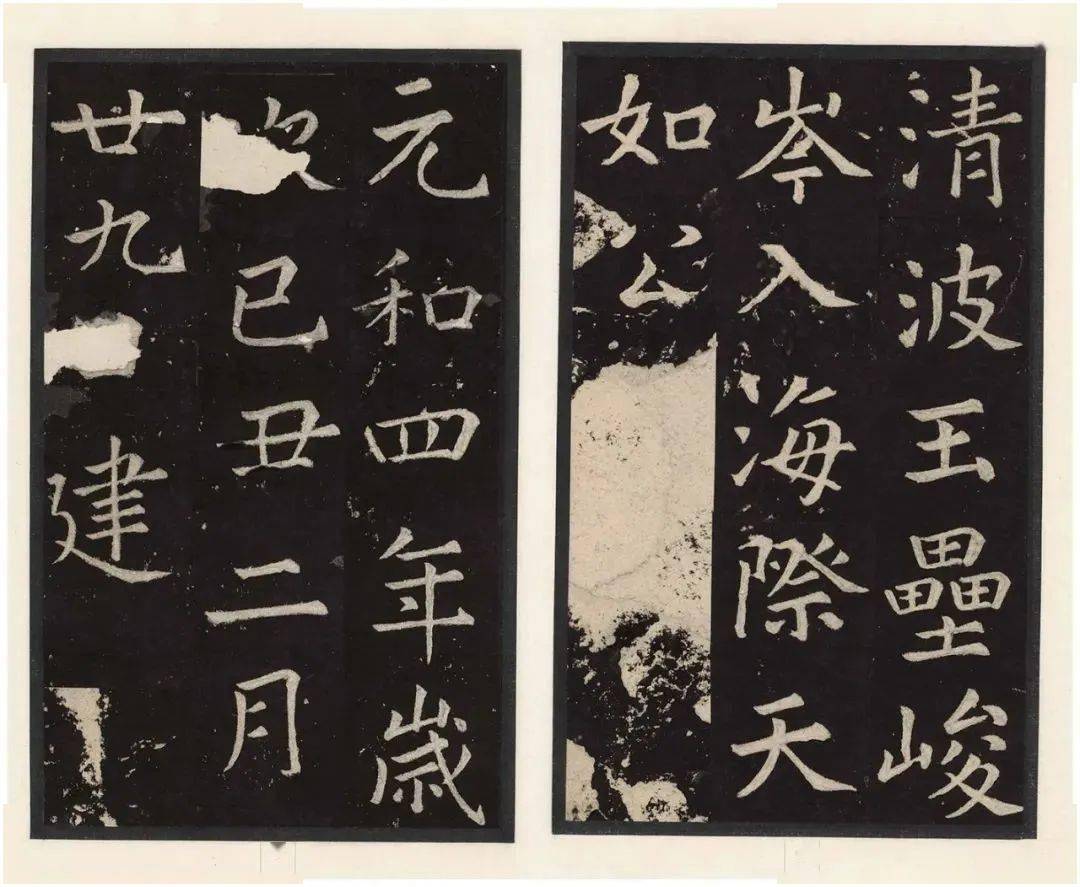 清波王壘峻
岑入海際天
如公
元和四年歲
次己丑二月
廿九
建